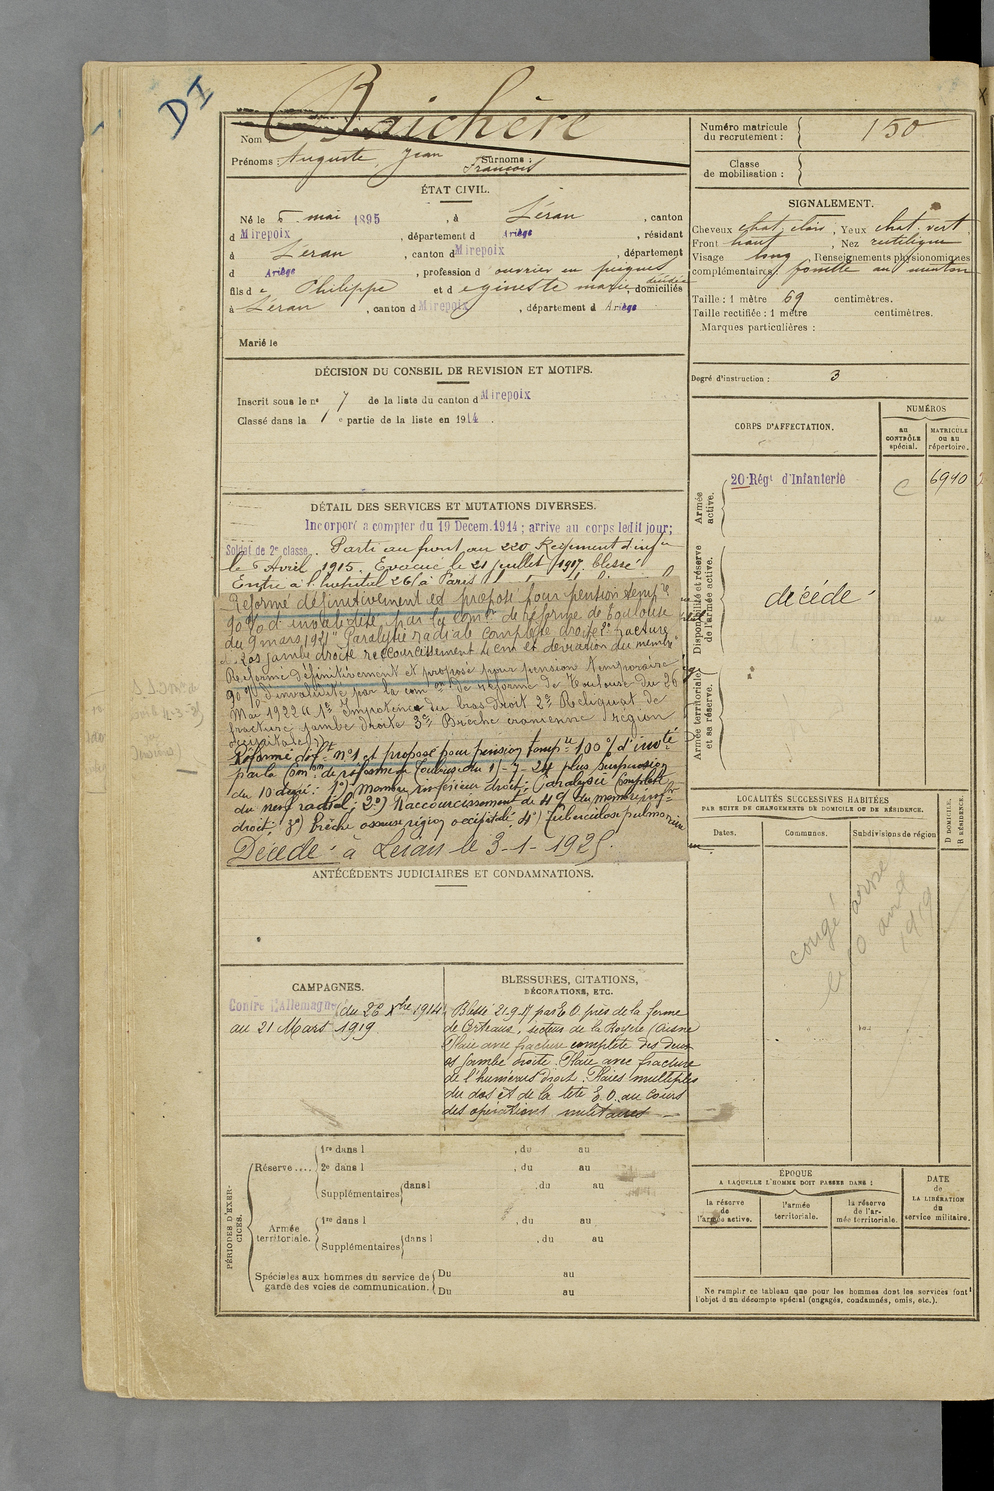 DI
Nom Baichère
Prénoms : Auguste, Jean Surnoms :
François
ÉTAT CIVIL.
Né le 5 mai 1895, à Léran, canton
d Mirepoix, département d Ariège, résidant
à Léran, canton d Mirepoix, département
d Ariège, profession d ouvrier en peignes
fils d e Philippe et d egineste marie, décédée domiciliés
à Léran, canton d Mirepoix, département d Ariège
Marié le
DÉCISION DU CONSEIL DE REVISION ET MOTIFS.
Inscrit sous le no 7 de la liste du canton d Mirepoix
Classé dans la 1e partie de la liste en 1914.
DÉTAIL DES SERVICES ET MUTATIONS DIVERSES.
Incorporé a compter du 19 Decem. 1914 ; arrive au corps ledit jour;
Soldat de 2e classe. Parti au front au 220 Régiment d'infie
le 5 Avril 1915. Evacué le 21 juillet 1917 blessé
Entre à l'hopital 26 à Paris
Réformé définitivement et proposé pour pension tempre
90 % d'invalidité par la comon de réforme de Toulouse
du 9 mars 1921 "Paralysie radiale complète droite 2o fracture
2 os jambe droite raccourcissement 4 cm et déviation du membre"
Réformé définitivement et proposé pour pension temporaire
90 % d'invalidité par la comon de réforme de Toulouse du 26
Mai 1922 "1o Impotence du bras droit 2o Reliquat de
fracture jambe droite 3o Brèche cranienne (région
occipitale)"
Réformé déft no 1 et proposé pour pension tempre 100 % d'invté
par la Comon de réforme de Toulouse du 1-7-24 plus surpension
du 10 degré: 1o) membre supérieur droit: Paralysie complète
du nerf radial; 2o) Raccourcissement de 4 c/ du membre infr
droit; 3o) Brèche osseuse région occipitale; 4o) Tuberculose pulmonaire
Décédé à Leran le 3-1-1925.
ANTÉCÉDENTS JUDICIAIRES ET CONDAMNATIONS.
CAMPAGNES.
Contre l'Allemagne (du 22 Xbre 1914
au 21 Mars 1919
BLESSURES, CITATIONS,
DÉCORATIONS, ETC.
Blessé 21-9-17 par E O près de la ferme
de Certeaux, secteur de la Royère (Aisne
Plaie avec fracture complète des deux
os jambe droite. Plaie avec fracture
de l'humérus droit. Plaies multiples
du dos et de la tête E. O. au cours
des opérations militaires
PÉRIODES D'EXERCICES.
Réserve.... 1re dans l , du au
2e dans l , du au
Supplémentaires dans l , du au
Armée territoriale. 1re dans l , du au
Supplémentaires dans l , du au
Spéciales aux hommes du service de Du au
garde des voies de communication. Du au
Numéro matricule
du recrutement : 150
Classe
de mobilisation :
SIGNALEMENT.
Cheveux chat. clair, Yeux chat. vert
Front haut, Nez rectiligne
Visage long, Renseignements physionomiques
complémentaires: fossette au menton
Taille : 1 mètre 69 centimètres.
Taille rectifiée : 1 mètre centimètres.
Marques particulières :
Degré d'instruction : 3
CORPS D'AFFECTATION.
NUMÉROS
au
CONTRÔLE
spécial.
MATRICULE
ou au
répertoire.
Armée
active.
20e Régt d'Infanterie C 6940
Disponibilité et réserve
de l'armée active.
décédé
Armée territoriale
et sa réserve.
LOCALITÉS SUCCESSIVES HABITÉES
PAR SUITE DE CHANGEMENTS DE DOMICILE OU DE RÉSIDENCE.
Dates.
Communes.
Subdivisions de région
D DOMICILE.
R RÉSIDENCE.
congé
1919
ÉPOQUE
A LAQUELLE L'HOMME DOIT PASSER DANS :
la réserve
de
l'armée active.
l'armée
territoriale.
la réserve
de l'ar-
mée territoriale.
DATE
de
LA LIBÉRATION
du
service militaire.
Ne remplir ce tableau que pour les hommes dont les services font
l'objet d'un décompte spécial (engagés, condamnés, omis, etc.).